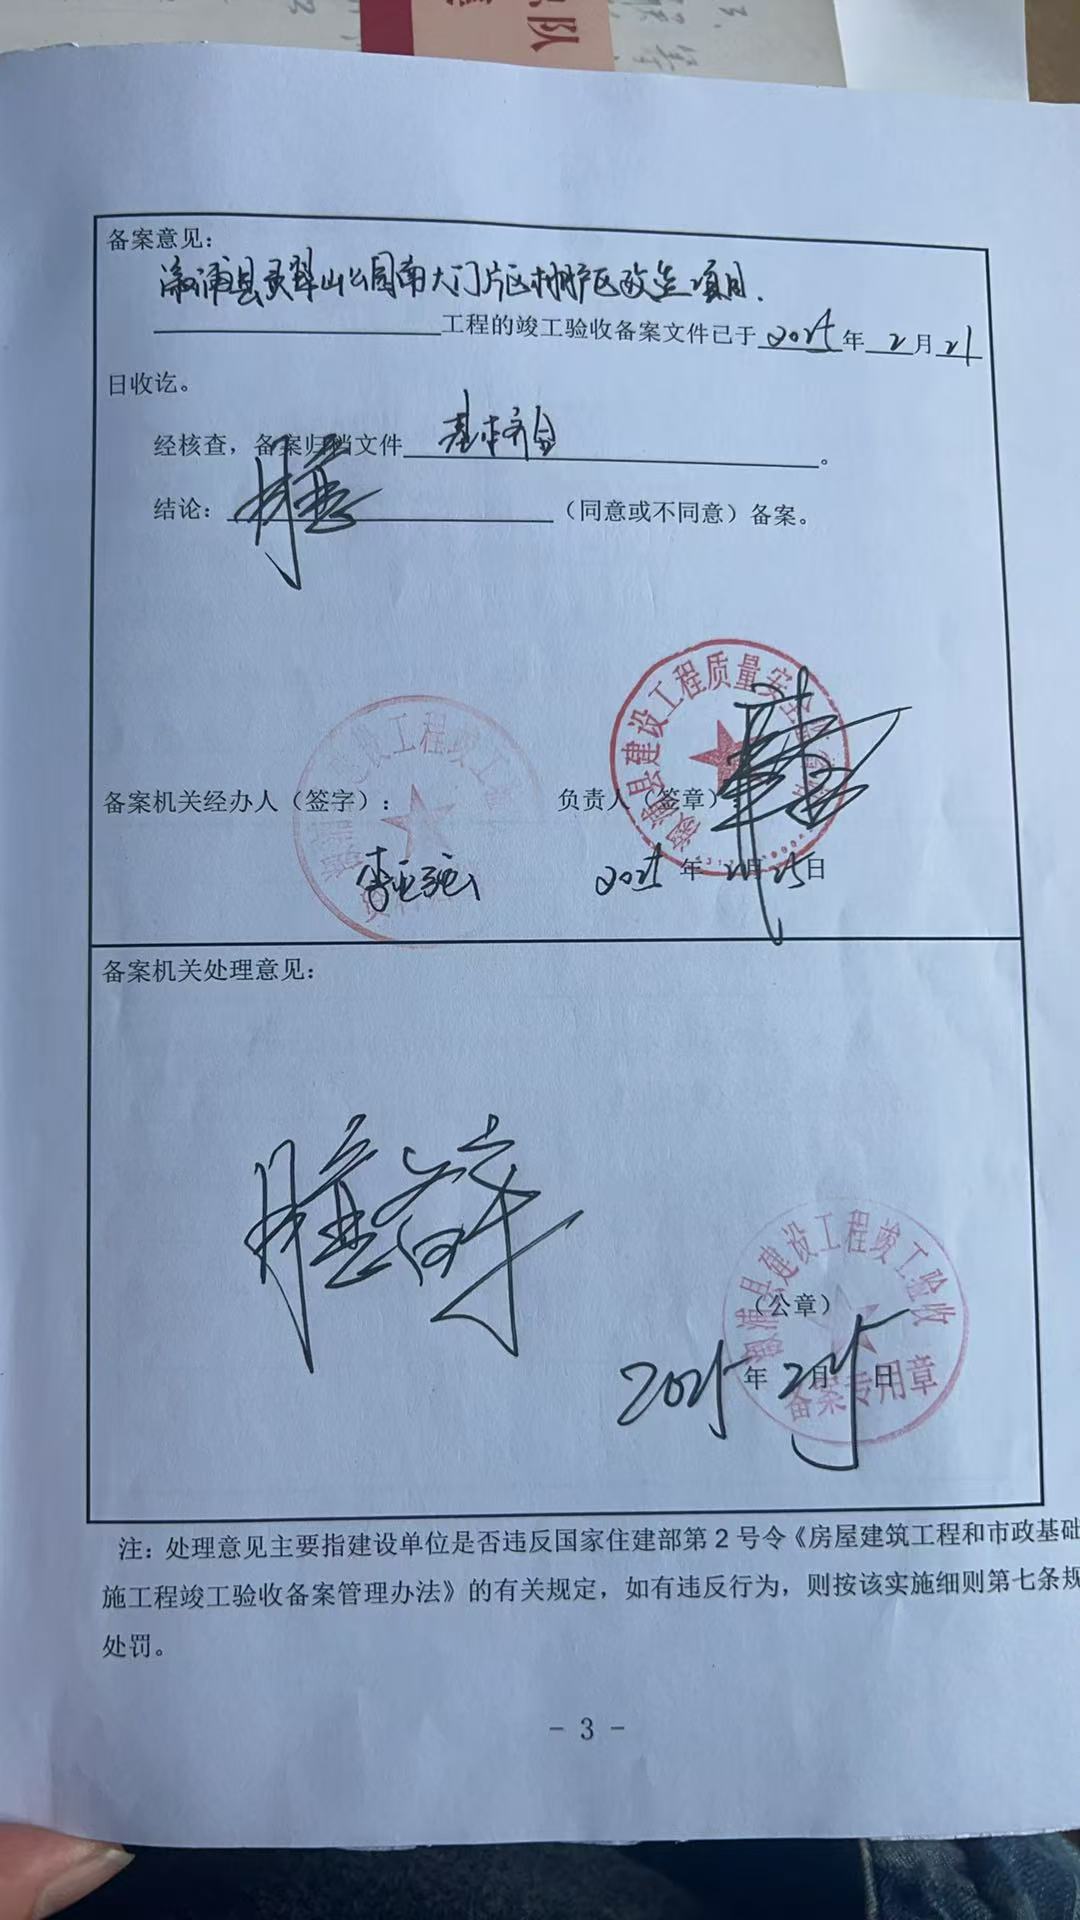 备案意见：
溆浦县灵翠山公园南大门片区棚户区改造项目.
工程的竣工验收备案文件已于2025年2月21
日收讫。
经核查，备案归档文件基本齐全。
结论：同意（同意或不同意）备案。
溆浦县建设工程质量安全
建筑工程竣工
备案机关经办人（签字）：
负责人（签章）
2025年2月25日
备案机关处理意见：
同意备案
溆浦县建设工程竣工验收
备案专用章
（公章）
2025年2月 日
注：处理意见主要指建设单位是否违反国家住建部第2号令《房屋建筑工程和市政基础
施工程竣工验收备案管理办法》的有关规定，如有违反行为，则按该实施细则第七条规
处罚。
- 3 -